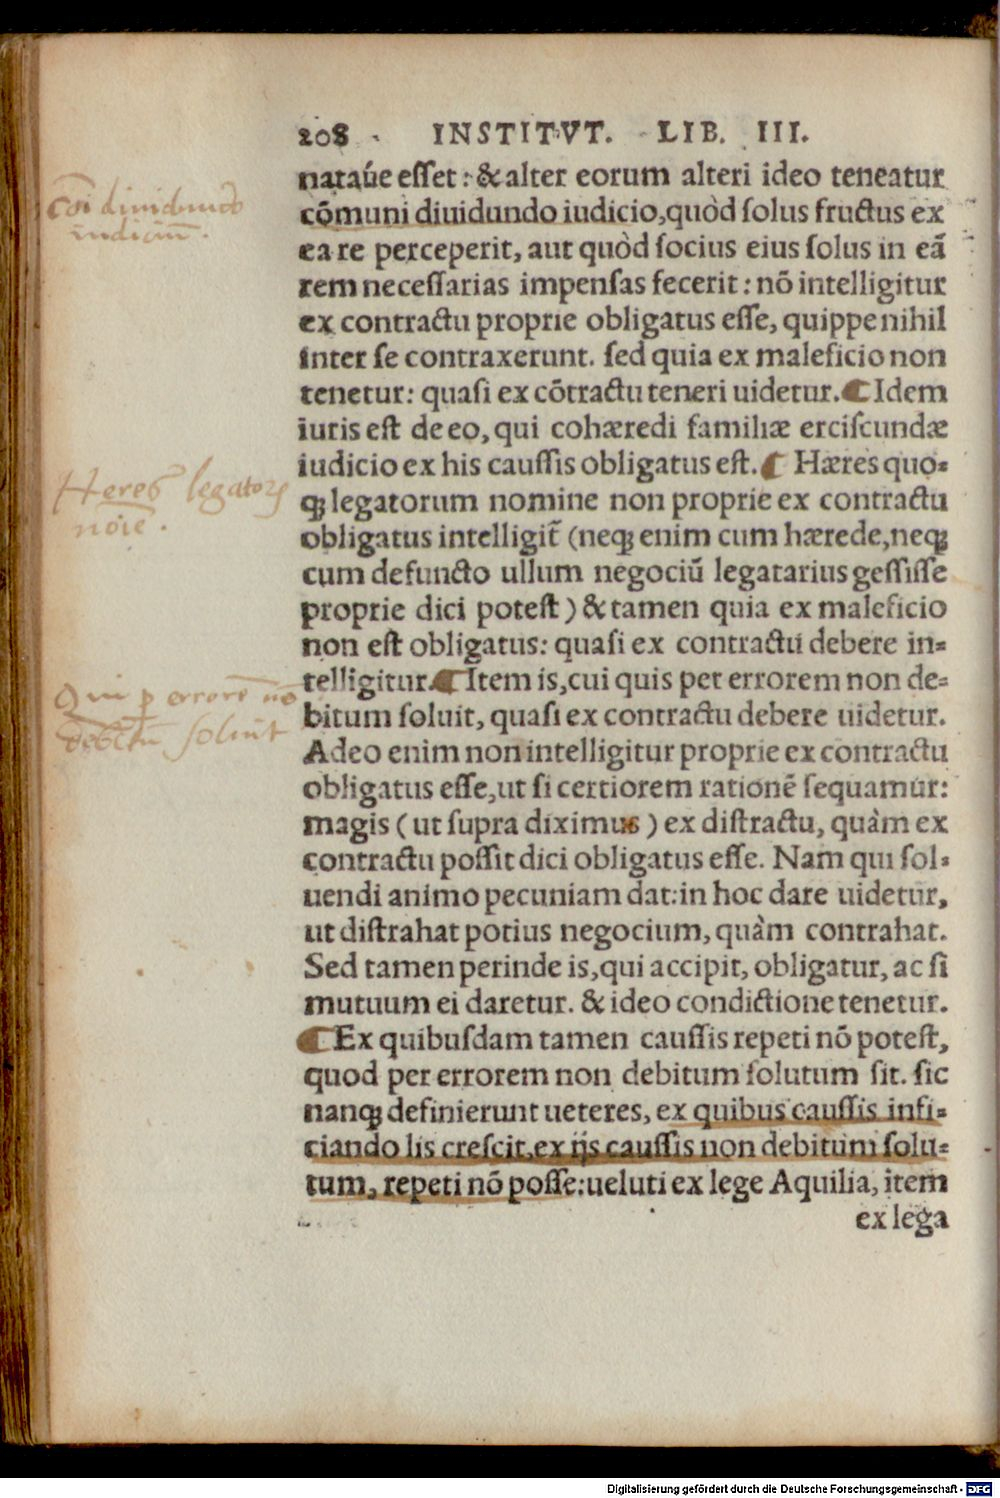 208 INSTITVT. LIB. III.
nataúe esset: & alter eorum alteri ideo teneatur
cõmuni diuidundo iudicio, quòd solus fructus ex
ea re perceperit, aut quòd socius eius solus in eã
rem necessarias impensas fecerit: nõ intelligitur
ex contractu proprie obligatus esse, quippe nihil
inter se contraxerunt. sed quia ex maleficio non
tenetur: quasi ex cõtractu teneri uidetur. ¶ Idem
iuris est de eo, qui cohæredi familiæ erciscundæ
iudicio ex his caussis obligatus est. ¶ Hæres quo-
qꝫ legatorum nomine non proprie ex contractu
obligatus intelligit̃ (neqꝫ enim cum hærede, neqꝫ
cum defuncto ullum negociũ legatarius gessisse
proprie dici potest) & tamen quia ex maleficio
non est obligatus: quasi ex contractu debere in-
telligitur. ¶ Item is, cui quis per errorem non de-
bitum soluit, quasi ex contractu debere uidetur.
Adeo enim non intelligitur proprie ex contractu
obligatus esse, ut si certiorem rationẽ sequamur:
magis (ut supra diximus) ex distractu, quàm ex
contractu possit dici obligatus esse. Nam qui sol-
uendi animo pecuniam dat: in hoc dare uidetur,
ut distrahat potius negocium, quàm contrahat.
Sed tamen perinde is, qui accipit, obligatur, ac si
mutuum ei daretur. & ideo condictione tenetur.
¶ Ex quibusdam tamen caussis repeti nõ potest,
quod per errorem non debitum solutum sit. sic
nanqꝫ definierunt ueteres, ex quibus caussis infi-
ciando lis crescit, ex ijs caussis non debitum solu-
tum, repeti nõ posse: ueluti ex lege Aquilia, item
ex lega
cõi diuidundo
iudiciũ.
Heres legatorꝫ
nõie.
Qui ꝑ errorẽ nõ
debitũ soluit
Digitalisierung gefördert durch die Deutsche Forschungsgemeinschaft - DFG